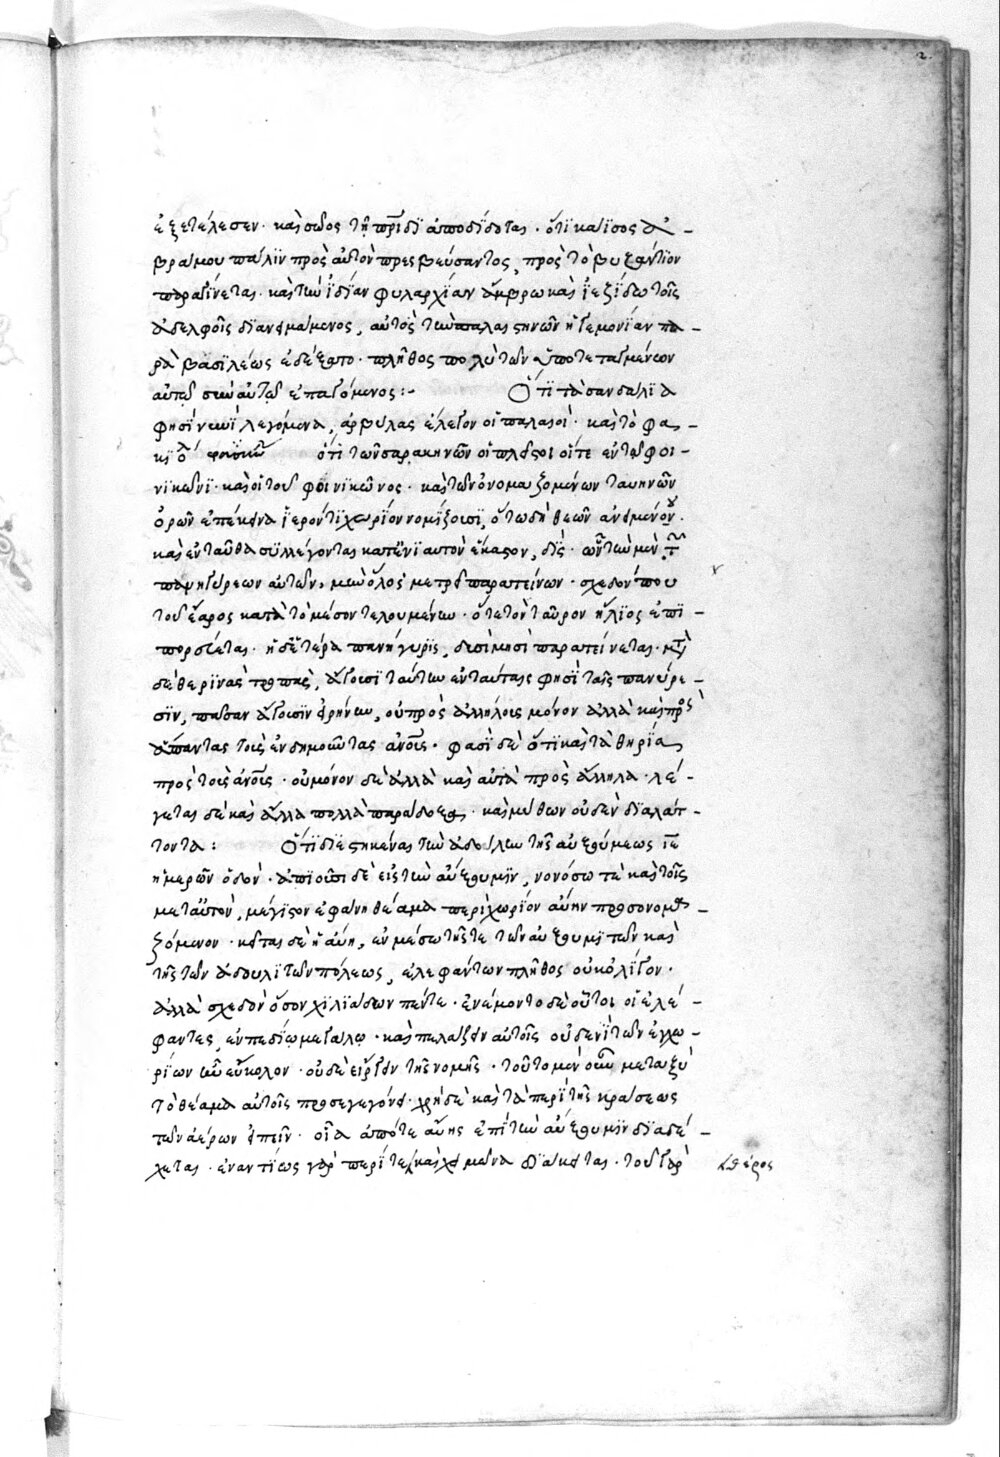 2.
ἐξετέλεσεν· καὶ σῶος τῇ πατρίδι ἀποδίδοται. ὅτι καϊσος ἀ-
βράμου πάλιν πρὸς αὐτὸν πρεσβεύσαντος, πρὸς τὸ βυζάντιον
παραγίνεται. καὶ τὴν ἰδίαν φυλαρχίαν ἄμβρω καὶ ἰεζίδω τοῖς
ἀδελφοῖς διανειμάμενος, αὐτὸς τὴν παλαιστηνῶν ἡγεμονίαν πα-
ρὰ βασιλέως ἐδέξατο· πλῆθος πολὺ τῶν ὑποτεταγμένων
αὐτῷ σὺν αὐτῷ ἐπαγόμενος:- Ὅτι τὰ σανδάλια
φησὶ νυνὶ λεγόμενα, ἀρβύλας ἔλεγον οἱ παλαιοί· καὶ τὸ φα-
κιόλιον φασώλιν ὅτι τῶν σαρακηνῶν οἱ πλεῖστοι οἵ τε ἐν τῷ φοι-
νικῶνι· καὶ οἱ τοῦ φοινικῶνος· καὶ τῶν ὀνομαζομένων ταυηνῶν
ὁρῶν ἐπέκεινα ἱερόν τι χωρίον νομίζουσι, ὅτῳ δὴ θεῶν ἀνειμένον.
καὶ ἐνταῦθα συλλέγονται κατ' ἐνιαυτὸν ἕκαστον δίς· ὧν τὴν μὲν τῶν
πανηγύρεων αὐτῶν, μὴν ὅλος μετρεῖ παρατείνων· σχεδόν που
τοῦ ἔαρος κατὰ τὸ μέσον τελουμένην· ὅτε τὸν ταῦρον ἥλιος ἐπι-
πορεύεται· ἡ δὲ ἑτέρα πανήγυρις, δυσὶ μησὶ παρατείνεται· μετὰ
δὲ θερινὰς τροπὰς, ἄγουσι ταύτην ἐν ταύταις φησὶ ταῖς πανηγύρε-
σιν, πᾶσαν ἄγουσιν εἰρήνην, οὐ πρὸς ἀλλήλους μόνον ἀλλὰ καὶ πρὸς
ἅπαντας τοὺς ἐνδημοῦντας ἀνους. φασὶ δὲ ὅτι καὶ τὰ θηρία
πρὸς τοὺς ἀνους· οὐ μόνον δὲ ἀλλὰ καὶ αὐτὰ πρὸς ἄλληλα. λέ-
γεται δὲ καὶ ἄλλα πολλὰ παράδοξα· καὶ μύθων οὐδὲν διαλάτ-
τοντα: Ὅτι διεστηκέναι τὴν ἀδούλην τῆς αὐξουμεως ιε
ἡμερῶν ὁδόν· ἀπιοῦσι δὲ εἰς τὴν αὐξουμιν, νονόσῳ τε καὶ τοῖς
μετ' αὐτοῦ, μέγιστον ἐφάνη θέαμα περὶ χωρίον αὔην προσονομα-
ζόμενον· κεῖται δὲ ἡ αὔη, ἐν μέσῳ τῆς τε τῶν αὐξουμιτῶν καὶ
τῆς τῶν ἀδουλιτῶν πόλεως, ἐλεφάντων πλῆθος οὐκ ὀλίγον·
ἀλλὰ σχεδὸν ὅσον χιλιάδων πέντε· ἐνέμοντο δὲ οὗτοι οἱ ἐλέ-
φαντες, ἐν πεδίῳ μεγάλῳ· καὶ πελάζειν αὐτοῖς οὐδενὶ τῶν ἐγχω-
ρίων ἦν εὔκολον· οὐδὲ εἴργειν τῆς νομῆς. τοῦτο μὲν οὖν μεταξὺ
τὸ θέαμα αὐτοῖς προσεγεγόνει· χρὴ δὲ καὶ τὰ περὶ τῆς κράσεως
τῶν ἀέρων εἰπεῖν. οἵα ἀπό τε αὔης ἐπὶ τὴν αὐξουμιν διαδέ-
χεται. ἐναντίως γὰρ περί τε καὶ χειμῶνα διάκειται. τοῦ γὰρ
θέρος